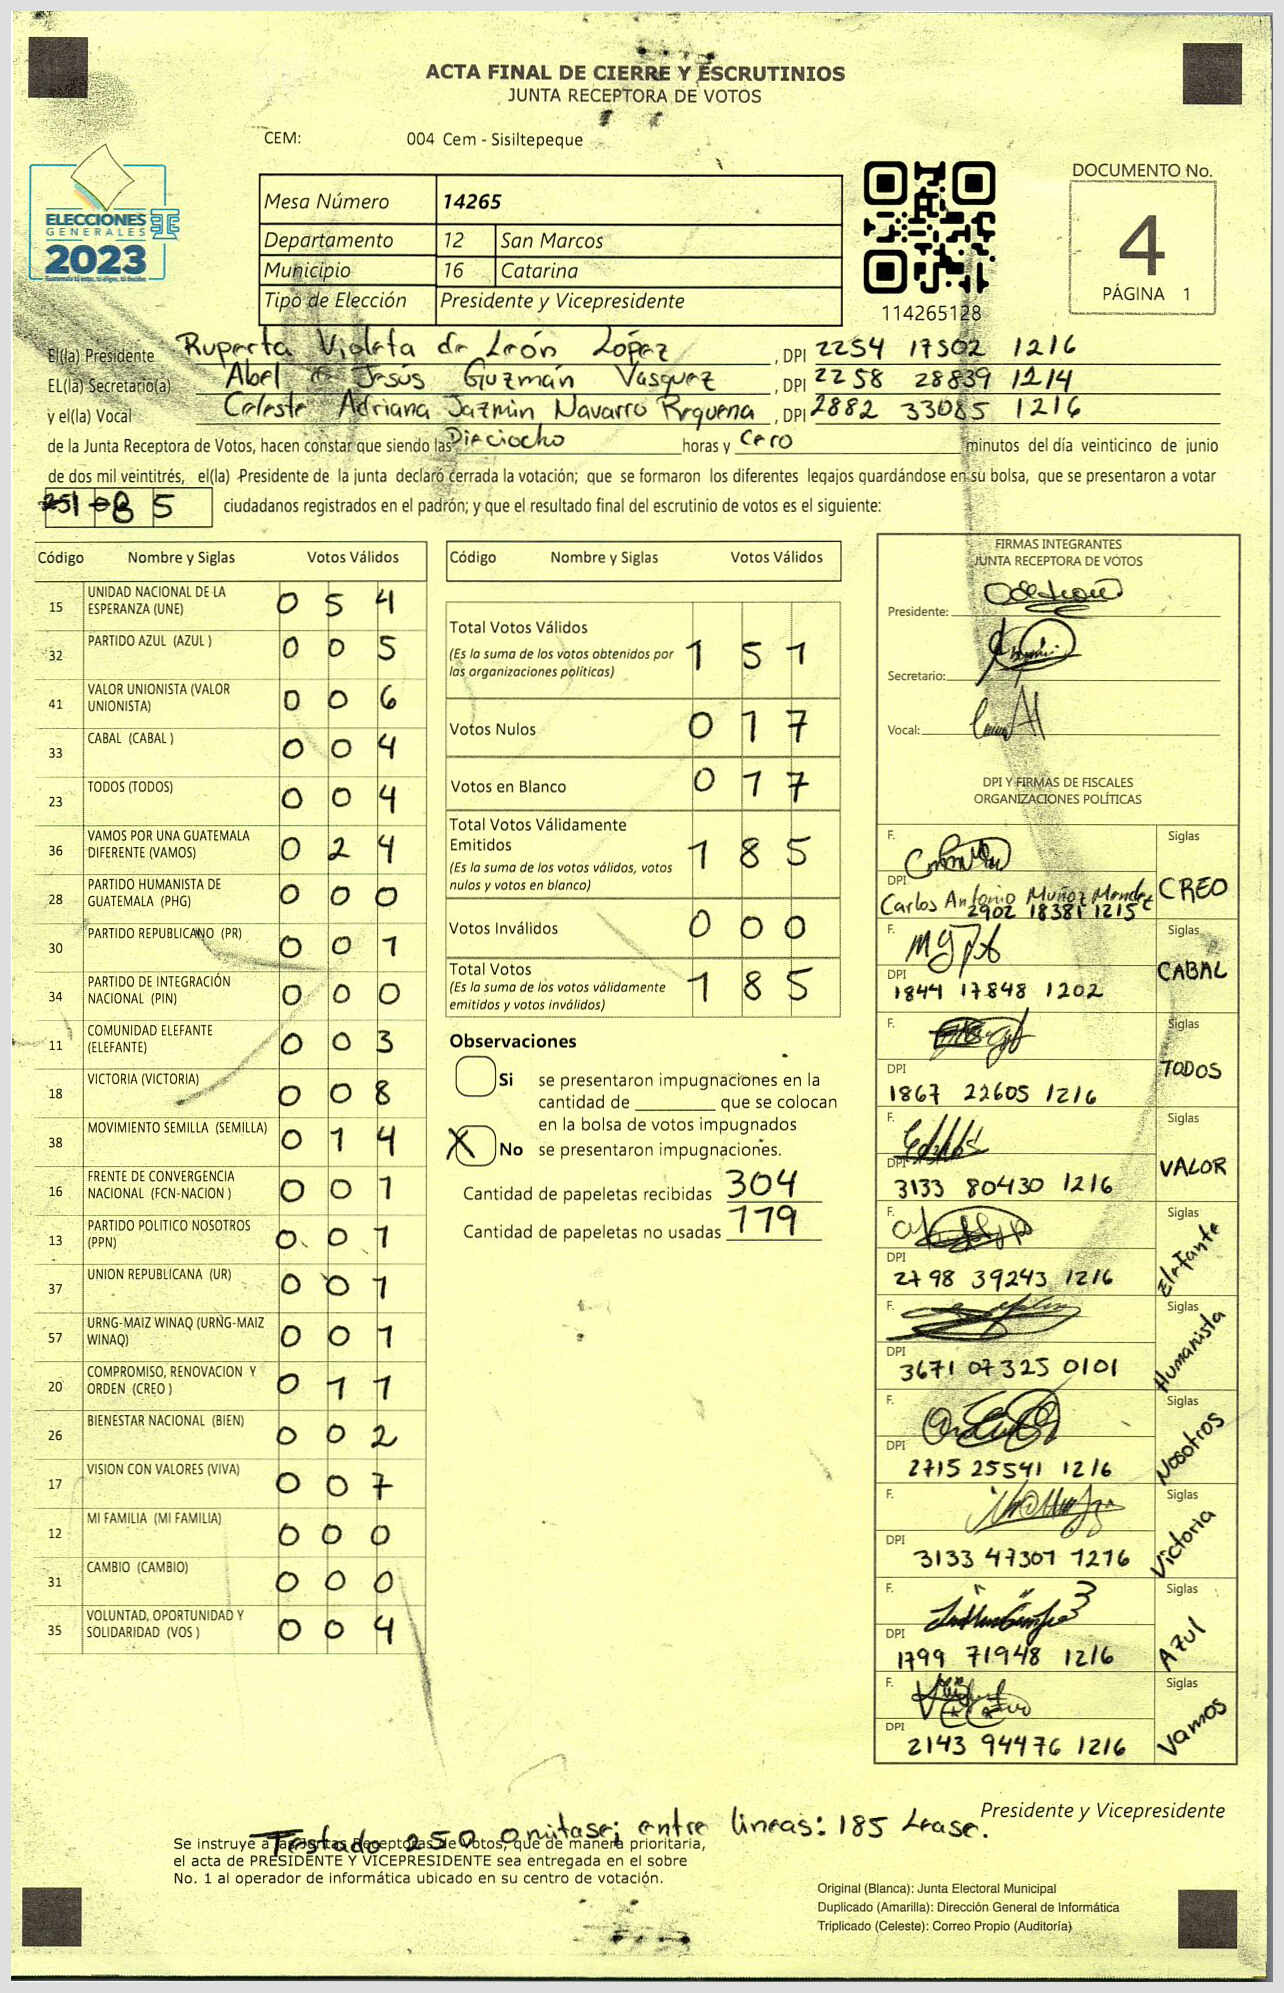 ACTA FINAL DE CIERRE Y ESCRUTINIOS
JUNTA RECEPTORA DE VOTOS
CEM: 004 Cem - Sisiltepeque
ELECCIONES
GENERALES
2023
Mesa Número 14265
Departamento 12 San Marcos
Municipio 16 Catarina
Tipo de Elección Presidente y Vicepresidente
114265128
DOCUMENTO No.
4
PÁGINA 1
El(la) Presidente Ruperta Violeta de León López, DPI 2254 17502 1216
EL(la) Secretario(a) Abel de Jesús Guzmán Vasquez, DPI 2258 28839 1214
y el(la) Vocal Celeste Adriana Jazmin Navarro Requena, DPI 2882 33085 1216
de la Junta Receptora de Votos, hacen constar que siendo las Dieciocho horas y Cero minutos del día veinticinco de junio
de dos mil veintitrés, el(la) Presidente de la junta declaró cerrada la votación; que se formaron los diferentes legajos guardándose en su bolsa, que se presentaron a votar
85 ciudadanos registrados en el padrón; y que el resultado final del escrutinio de votos es el siguiente:
Código Nombre y Siglas Votos Válidos
15 UNIDAD NACIONAL DE LA ESPERANZA (UNE) 0 5 4
32 PARTIDO AZUL (AZUL ) 0 0 5
41 VALOR UNIONISTA (VALOR UNIONISTA) 0 0 6
33 CABAL (CABAL ) 0 0 4
23 TODOS (TODOS) 0 0 4
36 VAMOS POR UNA GUATEMALA DIFERENTE (VAMOS) 0 2 4
28 PARTIDO HUMANISTA DE GUATEMALA (PHG) 0 0 0
30 PARTIDO REPUBLICANO (PR) 0 0 1
34 PARTIDO DE INTEGRACIÓN NACIONAL (PIN) 0 0 0
11 COMUNIDAD ELEFANTE (ELEFANTE) 0 0 3
18 VICTORIA (VICTORIA) 0 0 8
38 MOVIMIENTO SEMILLA (SEMILLA) 0 1 4
16 FRENTE DE CONVERGENCIA NACIONAL (FCN-NACION ) 0 0 1
13 PARTIDO POLITICO NOSOTROS (PPN) 0 0 1
37 UNION REPUBLICANA (UR) 0 0 1
57 URNG-MAIZ WINAQ (URNG-MAIZ WINAQ) 0 0 1
20 COMPROMISO, RENOVACION Y ORDEN (CREO ) 0 1 1
26 BIENESTAR NACIONAL (BIEN) 0 0 2
17 VISION CON VALORES (VIVA) 0 0 7
12 MI FAMILIA (MI FAMILIA) 0 0 0
31 CAMBIO (CAMBIO) 0 0 0
35 VOLUNTAD, OPORTUNIDAD Y SOLIDARIDAD (VOS ) 0 0 4
Código Nombre y Siglas Votos Válidos
Total Votos Válidos 1 5 1
(Es la suma de los votos obtenidos por
las organizaciones políticas)
Votos Nulos 0 1 7
Votos en Blanco 0 1 7
Total Votos Válidamente
Emitidos 1 8 5
(Es la suma de los votos válidos, votos
nulos y votos en blanco)
Votos Inválidos 0 0 0
Total Votos 1 8 5
(Es la suma de los votos válidamente
emitidos y votos inválidos)
Observaciones
Si se presentaron impugnaciones en la
cantidad de ________ que se colocan
en la bolsa de votos impugnados
X No se presentaron impugnaciones.
Cantidad de papeletas recibidas 304
Cantidad de papeletas no usadas 119
FIRMAS INTEGRANTES
JUNTA RECEPTORA DE VOTOS
Presidente:
Secretario:
Vocal:
DPI Y FIRMAS DE FISCALES
ORGANIZACIONES POLÍTICAS
F. Siglas
DPI CREO
Carlos Antonio Muñoz Mendez
2902 18381 1215
F. Siglas
DPI CABAL
1844 17848 1202
F. Siglas
DPI TODOS
1867 22605 1216
F. Siglas
DPI VALOR
3133 80430 1216
F. Siglas
DPI Elefante
2798 39243 1216
F. Siglas
DPI Humanista
3671 07325 0101
F. Siglas
DPI Nosotros
2715 25541 1216
F. Siglas
DPI Victoria
3133 47301 1216
F. Siglas
DPI Azul
1799 71948 1216
F. Siglas
DPI Vamos
2143 94476 1216
Presidente y Vicepresidente
Testado 250 Omitase; entre lineas: 185 Lease.
Se instruye a las Juntas Receptoras de Votos, que de manera prioritaria,
el acta de PRESIDENTE Y VICEPRESIDENTE sea entregada en el sobre
No. 1 al operador de informática ubicado en su centro de votación.
Original (Blanca): Junta Electoral Municipal
Duplicado (Amarilla): Dirección General de Informática
Triplicado (Celeste): Correo Propio (Auditoría)